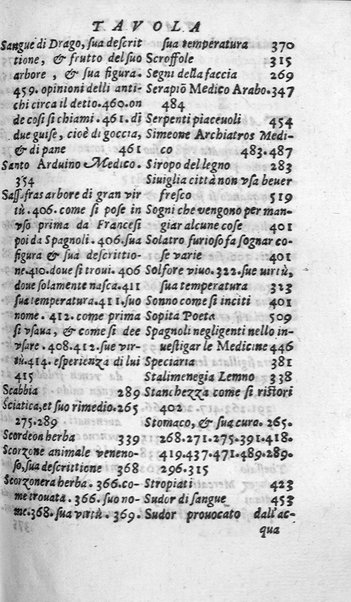 TAVOLA
Sangue di Drago, sua descrit
tione, & frutto del suo
arbore, & sua figura.
459. opinioni delli anti-
chi circa il detto.460.on
de cosi si chiami. 461. di
due guise, cioè di goccia,
& di pane 461
Santo Arduino Medico.
354
Sassafras arbore di gran vir
tù.406. come si pose in
vso prima da Francesi
poi da Spagnoli. 406. sua
figura & sua descrittio-
ne.410. doue si troui. 406
doue solamente nasca.411
sua temperatura.411. suo
nome. 412. come prima
si vsaua, & come si dee
vsare. 408.412. sue vir
tù.414. esperienza di lui
415
Scabbia 289
Sciatica, et suo rimedio.265
275.289
Scordeon herba 339
Scorzone animale veneno-
so, sua descrittione 368
Scorzonera herba. 366. co-
me trouata. 366. suo no-
me.368. sua virtù. 369.
sua temperatura 370
Scroffole 315
Segni della faccia 269
Serapiō Medico Arabo.347
484
Serpenti piaceuoli 454
Simeone Archiatros Medi-
co 483.487
Siropo del legno 283
Siuiglia città non vsa beuer
fresco 519
Sogni che vengono per man-
giar alcune cose 401
Solatro furioso fa sognar co-
se varie 401
Solfore viuo. 322. sue virtù,
sua temperatura 323
Sonno come si inciti 401
Sopita Poeta 509
Spagnoli negligenti nello in-
uestigar le Medicine 446
Speciaria 381
Stalimenegia Lemno 338
Stanchezza come si ristori
402
Stomaco, & sua cura. 265.
268.271.275.391.418.
419.437.471.489.289.
296.315
Stropiati 423
Sudor di sangue 453
Sudor prouocato dall'ac-
qua